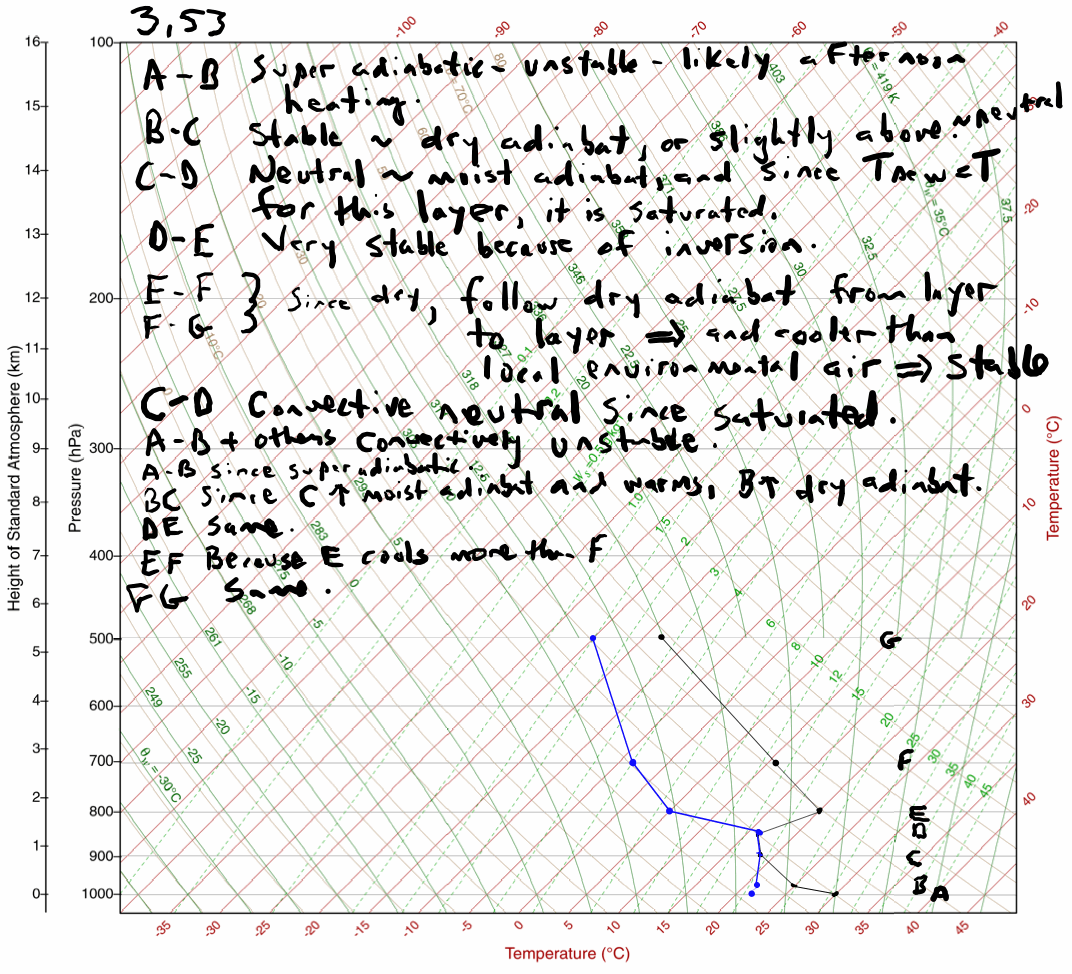 3,53
A-B Super adiabatic - unstable - likely afternoon
heating.
B-C Stable ~ dry adiabat, or slightly above. ~neutral
C-D Neutral ~ moist adiabat, and since Tnew=T
for this layer, it is saturated.
D-E Very stable because of inversion.
E-F } Since dry, follow dry adiabat from layer
F-G to layer ⇒ and cooler than
local environmental air ⇒ stable
C-D Convective neutral since saturated.
A-B + others convectively unstable.
A-B since superadiabatic.
BC Since C ↑ moist adiabat and warms, B↑ dry adiabat.
DE Same.
EF Because E cools more than F
FG Same.
G
F
E
D
C
B A
-100 -90 -80 -70 -60 -50 -40
-20
-10
0
10
20
30
40
Temperature (°C)
16
15
14
13
12
11
10
9
8
7
6
5
4
3
2
1
0
Height of Standard Atmosphere (km)
100
200
300
400
500
600
700
800
900
1000
Pressure (hPa)
80
70°C
403
θ = 419 K
θw = 35°C
37.5
32.5
30
346
22.5
20
318
283
268
261
255
249
0
-5
-10
-15
-20
-25
θw = -30°C
1.0
1.5
2
3
4
6
8
10
12
15
20
25
30
35
40
45
-35 -30 -25 -20 -15 -10 -5 0 5 10 15 20 25 30 35 40 45
Temperature (°C)